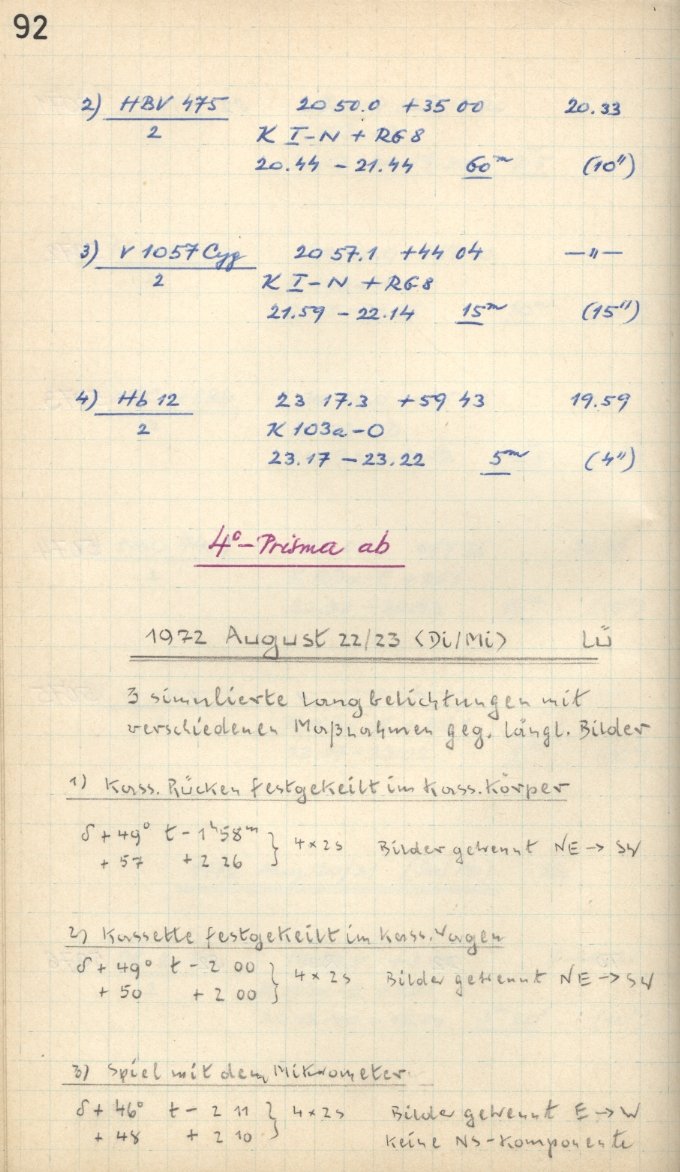 92
2) HBV 475 20 50.0 +35 00 20.33
2 K I-N + RG8
20.44 – 21.44 60ᵐ (10")
3) V 1057 Cyg 20 57.1 +44 04 —"—
2 K I-N + RG8
21.59 – 22.14 15ᵐ (15")
4) Hb 12 23 17.3 +59 43 19.59
2 K 103a-O
23.17 – 23.22 5ᵐ (4")
4°-Prisma ab
1972 August 22/23 (Di/Mi) LÜ
3 simulierte Langbelichtungen mit
verschiedenen Maßnahmen geg. längl. Bilder
1) Kass. Rücken festgekeilt im Kass. Körper
δ + 49° t – 1ʰ58ᵐ } 4 x 2s Bilder getrennt NE → SW
+ 57 + 2 26
2) Kassette festgekeilt im Kass. Wagen
δ + 49° t – 2 00 } 4 x 2s Bilder getrennt NE → SW
+ 50 + 2 00
3) Spiel mit dem Mikrometer
δ + 46° t – 2 11 } 4 x 2s Bilder getrennt E → W
+ 48 + 2 10 keine NS-Komponente